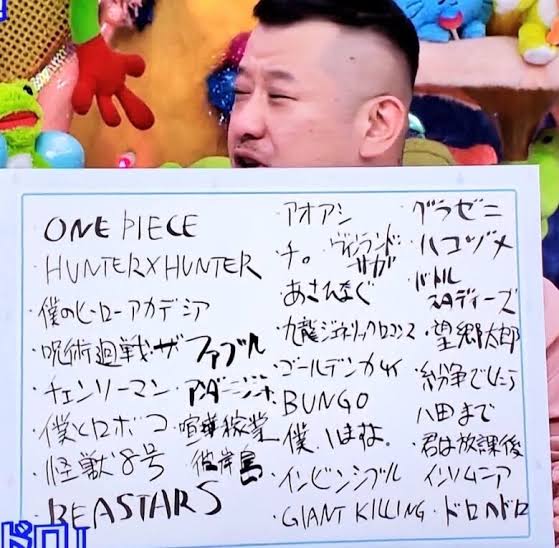 ONE PIECE
・HUNTER×HUNTER
・僕のヒーローアカデミア
・呪術廻戦・ザ ファブル
・チェンソーマン ・アンダーニンジャ
・僕とロボコ ・喧嘩稼業
・怪獣8号 彼岸島
・BEASTARS
・アオアシ
・チ。 ・ヴィンランド・
サガ
・あさひなぐ
・九龍ジェネリックロマンス
・ゴールデンカムイ
・BUNGO
・僕
・インビンシブル
・GIANT KILLING
・グラゼニ
・ハコヅメ
・バトル
スタディーズ
・望郷太郎
・紛争でしたら
八田まで
・君は放課後
インソムニア
・ドロヘドロ